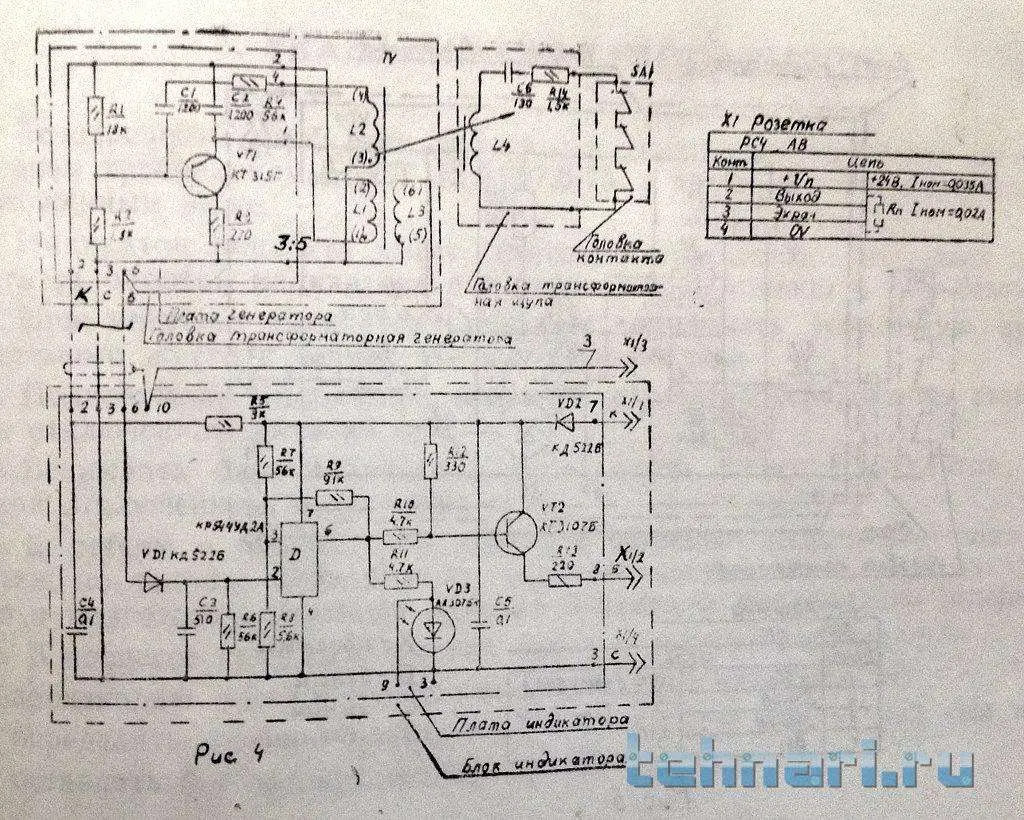 TV
2
4
C1
1200
C2
1200
R4
56к
R1
18к
1
(4)
L2
(3)
VT1
КТ 315Г
(2)
L1
(1)
(6)
L3
(5)
R2
R3
220
3:5
C6
130
R14
1,5к
SA1
L4
Головка
контакта
X1 Розетка
РС4 АВ
Конт. Цепь
1 +Uп +24В, Iном-0,035А
2 Выход Rн Iном=0,02А
3 Экран
4 0V
2 3 6
К С Б
Плата генератора
Головка трансформаторная генератора
3
X1/3
2 3 6 10
R5
3к
VD2
7
X1/1
к
КД 522Б
R7
56к
R9
91к
R12
330
R10
4,7к
VT2
КТ3107Б
КР544УД2А
7
3
6
2
D
4
R11
4,7к
R13
220
8
Б
X1/2
VD1 КД522Б
C4
0,1
C3
510
R6
56к
R8
5,6к
VD3
C5
0,1
X1/4
3
С
9
3
Плата индикатора
Блок индикатора
Рис 4
tehnari.ru